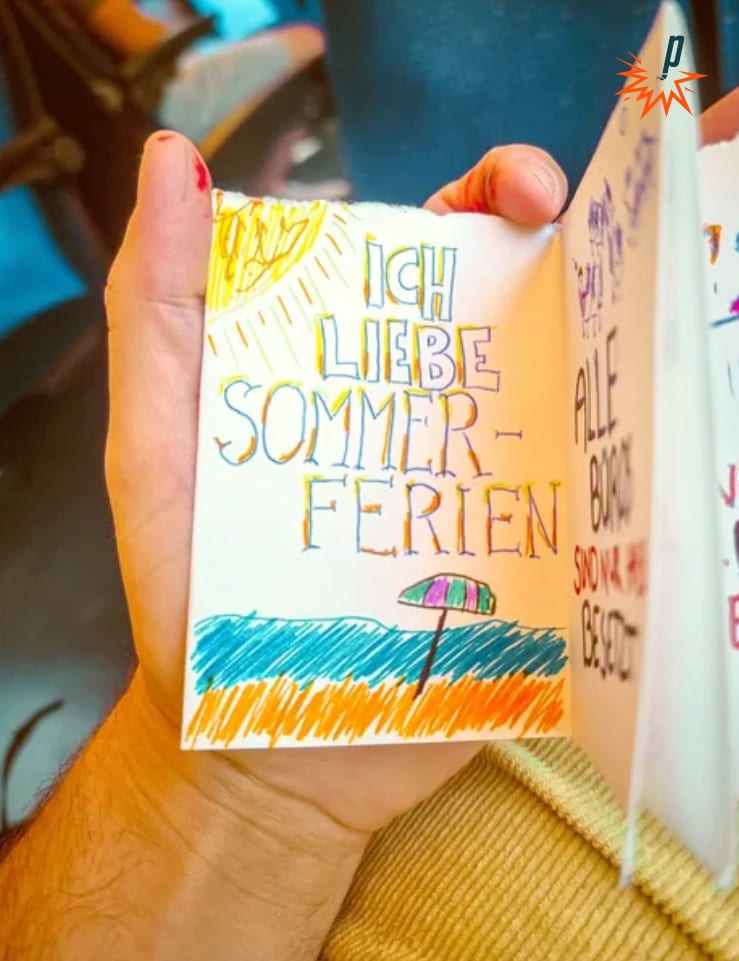 ICH
LIEBE
SOMMER-
FERIEN
ALLE
BÜROS
SIND NUR
BESETZT
p